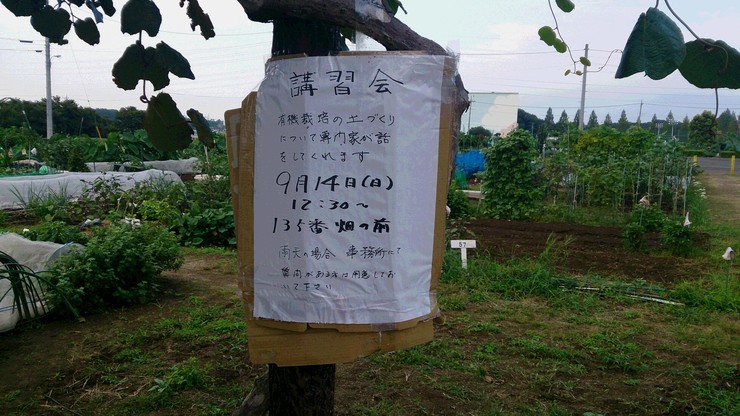 講習会
有機栽培の土づくり
について専門家が話
をしてくれます
9月14日(日)
12:30〜
135番畑の前
雨天の場合 事務所にて
質問がある方は用意してお
いて下さい
57